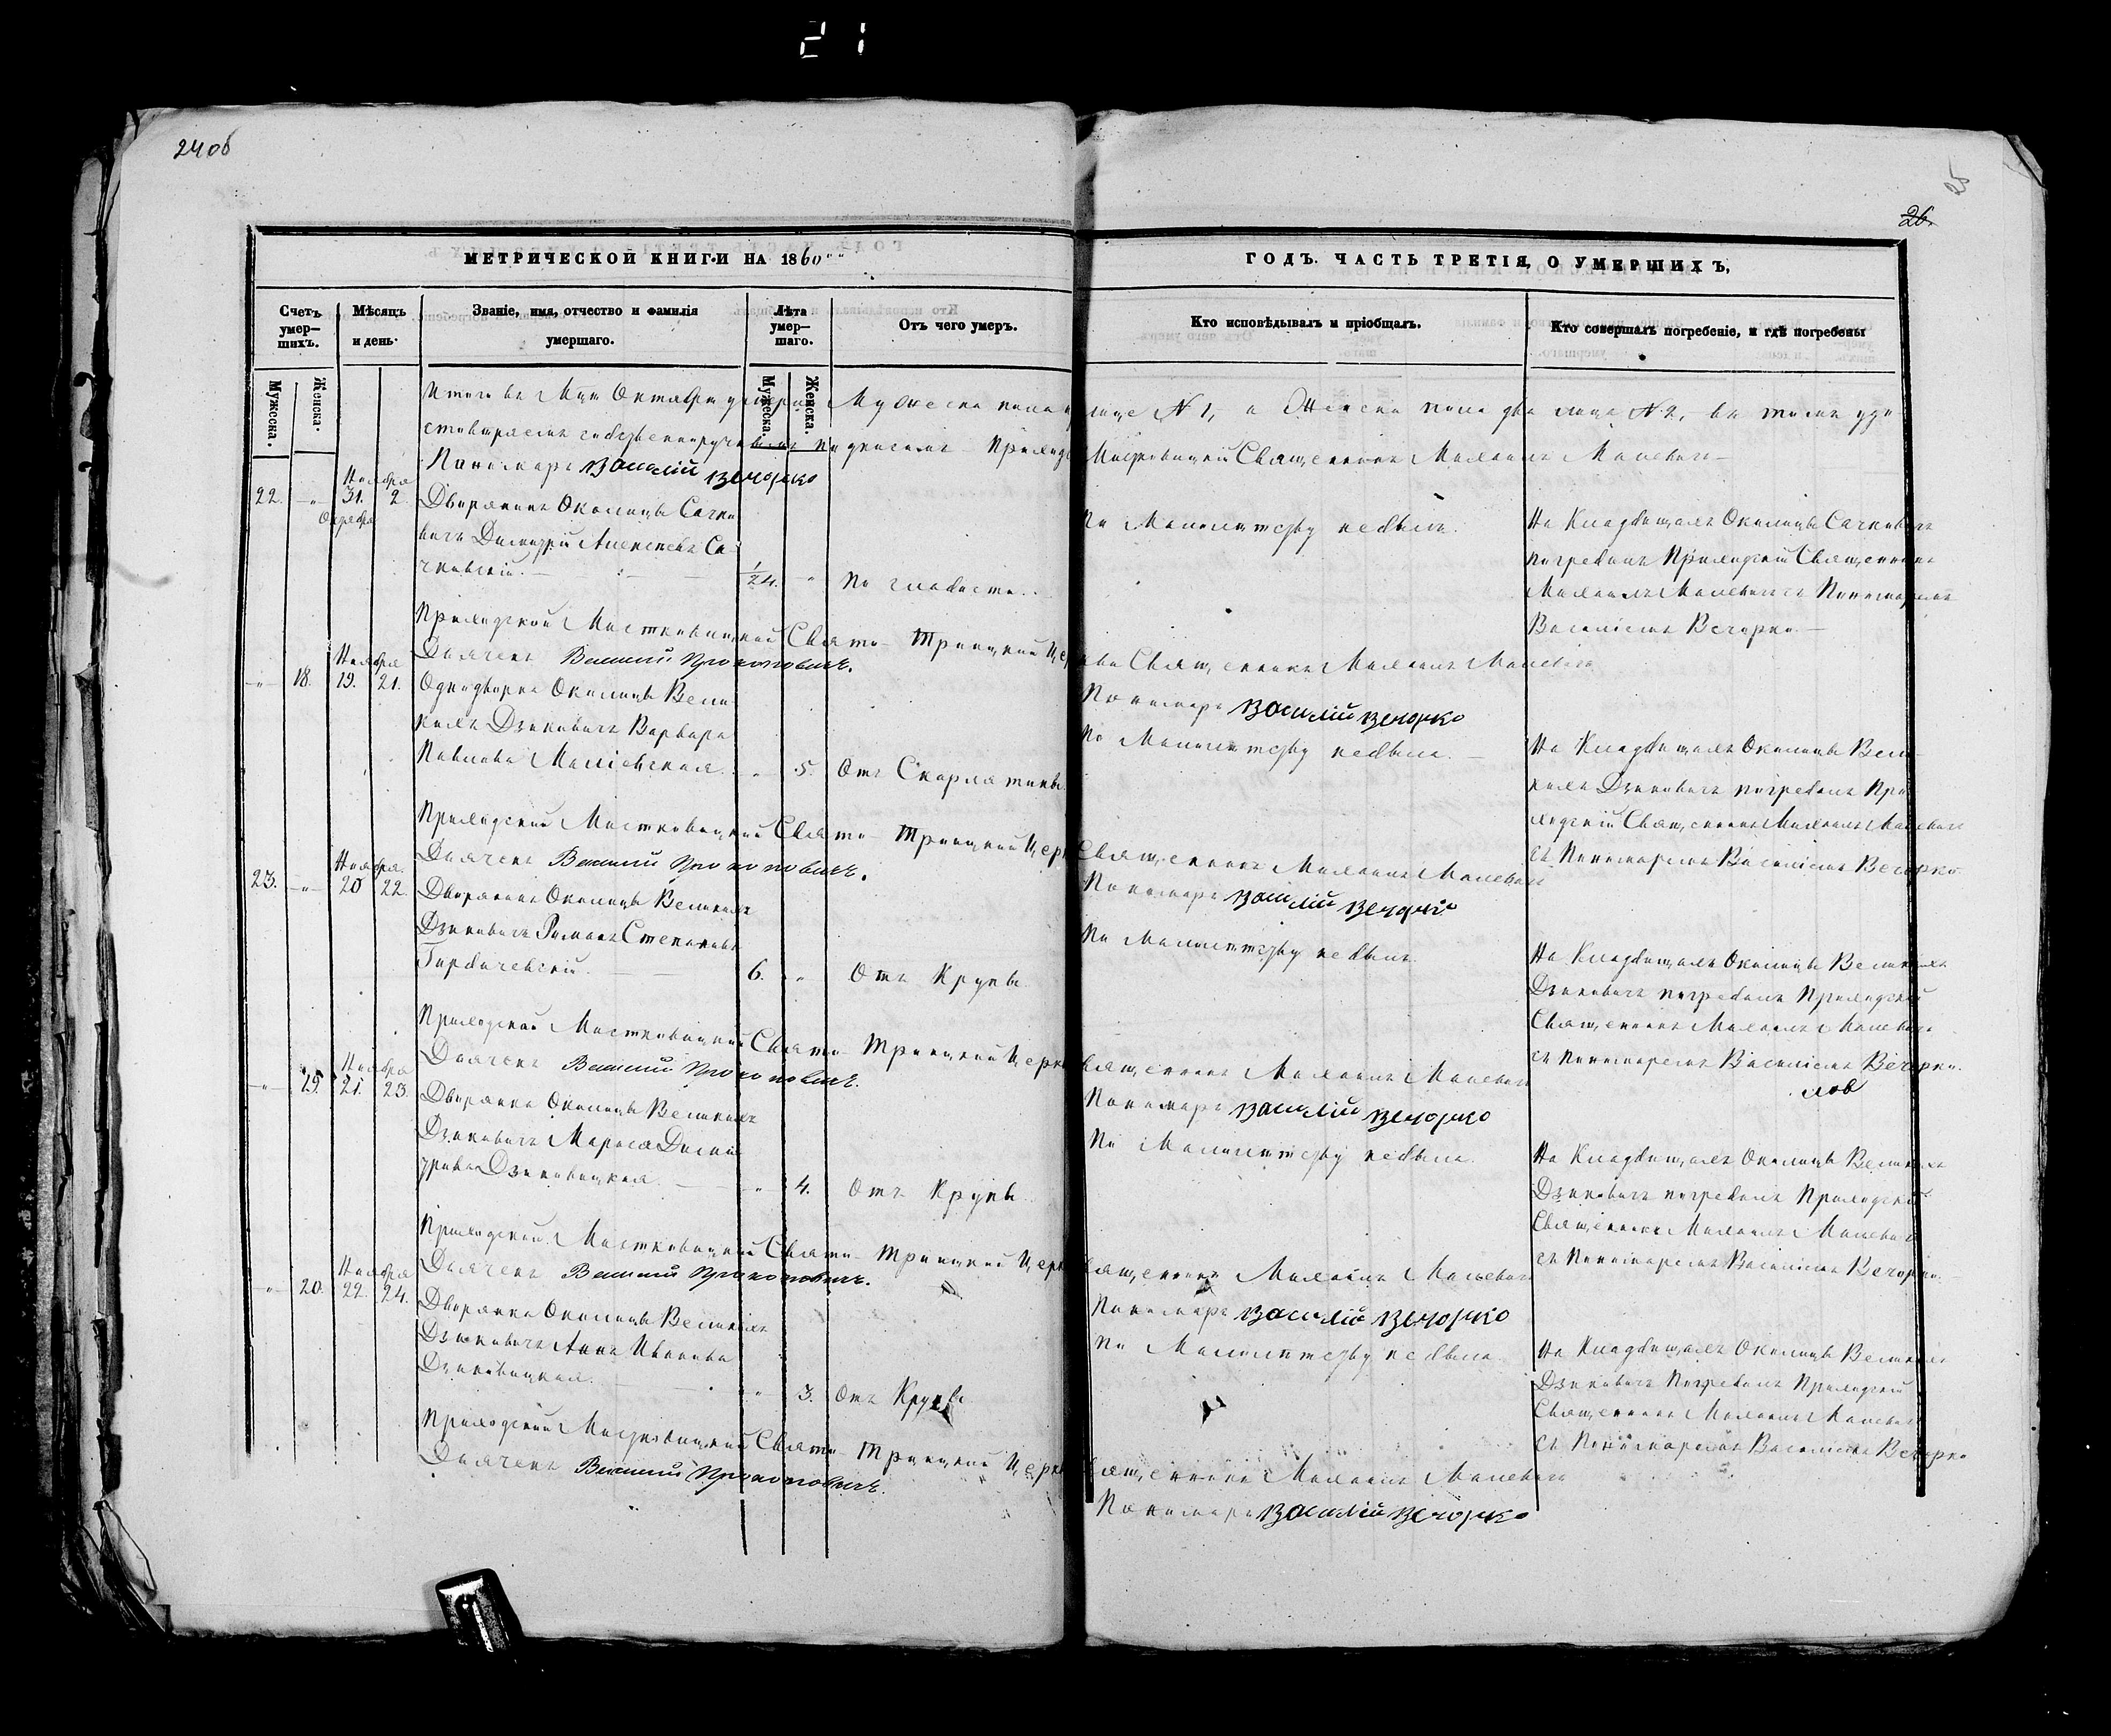 21
24об
25
26.
МЕТРИЧЕСКОЙ КНИГИ НА 1860
ГОДЪ. ЧАСТЬ ТРЕТІЯ, О УМЕРШИХЪ,
Счетъ умер-шихъ.
Мѣсяцъ и день.
Званіе, имя, отчество и фамилія умершаго.
Лѣта умер-шаго.
Отъ чего умеръ.
Кто исповѣдывалъ и пріобщалъ.
Кто совершалъ погребеніе, и гдѣ погребены
Мужеска.
Женска.
Мужеска.
Женска.
Итого въ Октября Мужеска пола лице №1, а Женска пола два лица №2, въ томъ удо
стовѣряемъ собственноручнымъ подписомъ Приход Священникъ Михаилъ Малевичъ
Пономарь Василій Вечорко
22. Ноября 31. 2 Октября
Дворянинъ Околицы Сачко
вичъ Димитрій Алексѣевъ Са
чковскій.
1/24.
По слабости.
По Малолѣтству небылъ.
На Кладбищахъ Околицы Сачковичъ
погребалъ Приходскій Священникъ
Михаилъ Малевичъ съ Пономаремъ
Василіемъ Вечорко
Приходской Свято Троицкой Церкви Священникъ Михаилъ Малевичъ
Дьячекъ Василій Прокоповичъ.
Пономарь Василій Вечорко
18. Ноября 19. 21.
Однодворка Околицы Вели
кихъ Дзиковичъ Варвара
Павлова Малієвская.
5. Отъ Скарлатины.
По Малолѣтству небыла.
На Кладбищахъ Околицы Вели
кихъ Дзиковичъ погребалъ При
ходскій Священникъ Михаилъ Малевичъ
съ Пономаремъ Василіемъ Вечорко.
Приходской Свято Троицкой Церк Священникъ Михаилъ Малевичъ
Дьячекъ Василій Прокоповичъ.
Пономарь Василій Вечорко
23. Ноября 20 22
Дворянинъ Околицы Великихъ
Дзиковичъ Романъ Степановъ
Горбачевскій.
6. Отъ Крупы
По Малолѣтству небылъ.
На Кладбищахъ Околицы Великихъ
Дзиковичъ погребалъ Приходскій
Священникъ Михаилъ Малевичъ
съ Пономаремъ Василіемъ Вечорко.
Приходской Свято Троицкой Церк вящ, енникъ Михаилъ Малевичъ
Дьячекъ Василій Прокоповичъ.
Пономарь Василій Вечорко
19. Ноября 21. 23.
Дворянка Околицы Великихъ
Дзиковичъ Марья Дими
трова Дзиковицкая.
4. Отъ Крупы
По Малолѣтству небыла.
На Кладбищахъ Околицы Великихъ
Дзиковичъ погребалъ Приходскій
Священникъ Михаилъ Малевичъ
съ Пономаремъ Василіемъ Вечорко.
Приходской Свято Троицкой Церк вященникъ Михаилъ Малевичъ
Дьячекъ Василій Прокоповичъ.
Пономарь Василій Вечорко
20. Ноября 22. 24.
Дворянка Околицы Великихъ
Дзиковичъ Анна Иванова
Дзиковицкая.
3. Отъ Крупы
По Малолѣтству небыла.
На Кладбищахъ Околицы Великихъ
Дзиковичъ Погребалъ Приходскій
Священникъ Михаилъ Малевичъ
съ Пономаремъ Василіемъ Вечорко
Приходской Свято Троицкой Церк вященникъ Михаилъ Малевичъ
Дьячекъ Василій Прокоповичъ.
Пономарь Василій Вечорко